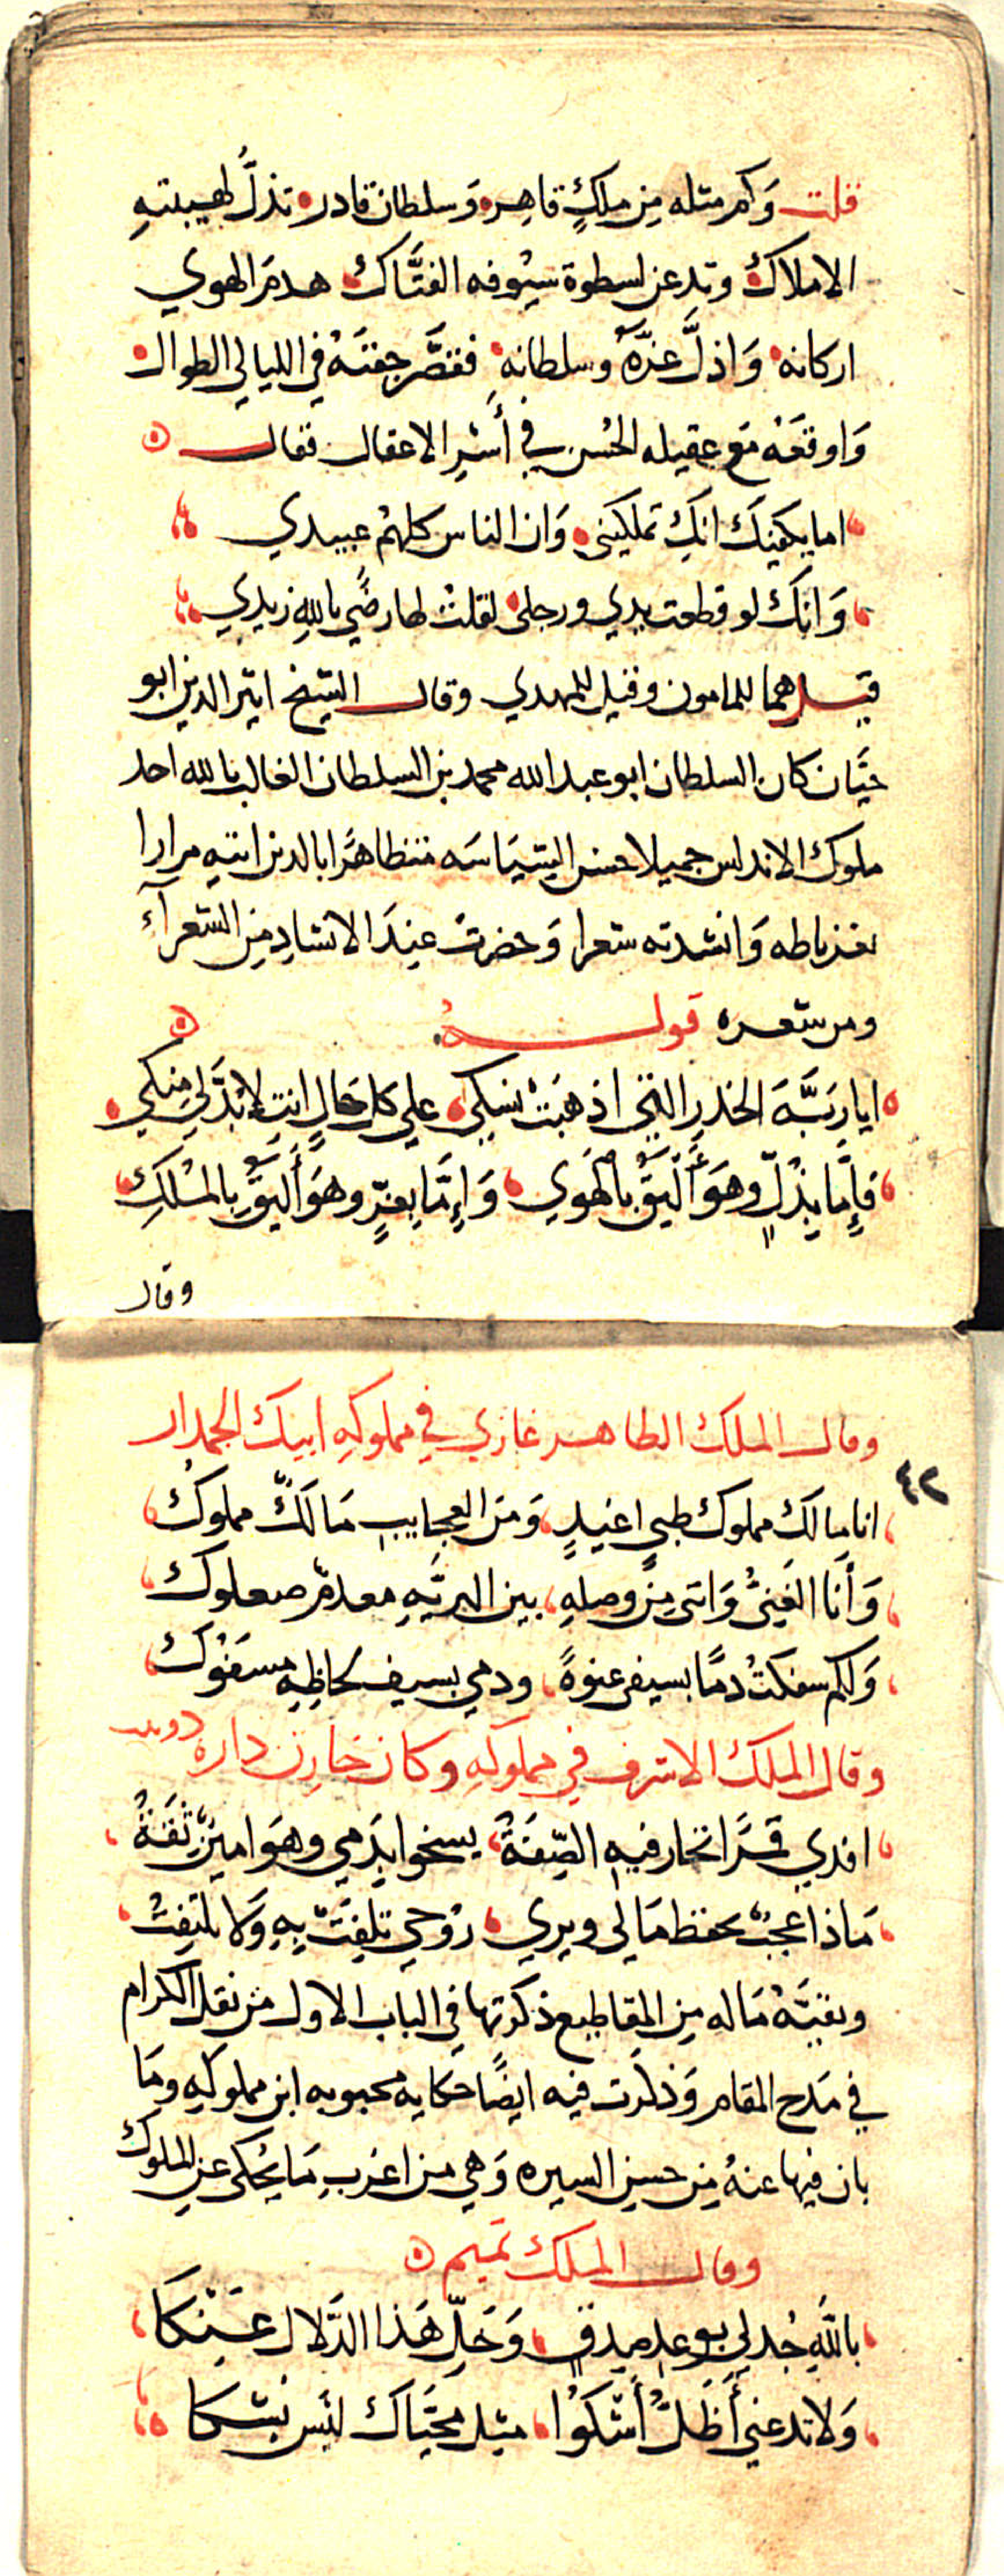 قلت وَكم مثله مِن ملكٍ قاهِر وَسلطان قادر تذلُّ لهيبتهِ
الاملاك وتدعن لسطوة سيُوفه الفتَّاك هدمَ الهوي
اركانه وَاذلَّ عزّهُ وسلطانهِ فقصَّر جفنَهُ في الليالي الطوال
وَاوقعَهُ مَع عقيله الحُسن في أَسْرِ الاعقال فقال
اما يكفيكَ انكِ تملكينى وَان الناس كلهمُ عبيدي
وَانكَ لو قطعت يدي ورجلى لقلتْ لها رضًي بالله زيدي
قيل هما للمامون وقيل للمهدي وقال الشيخ اثير الدين ابو
حيَّان كان السلطان ابو عبد الله محمد بن السلطان الغالب بالله احد
ملوك الاندلس جميلا حسن السّيَاسَه متظاهرًا بالدين اتيته مرارا
بغرناطه وَانشدته شعرا وَحضرتُ عندَ الانشادِ مِن الشعرآءِ
ومن شعره قوله
ايا ربَّةَ الخدرِ التي اذهبَتْ نسكي علي كل حَالٍ انتِ لا بدَّ لِي منكي
فإِمّا بِذُلٍّ وهوَ أَليَقُ بالهَوي وَإِمّا بعزٍّ وهوَ أَليَقُ بالمُلكِ
وقال
وقال الملك الظاهر غازي في مملوكهِ ايبك الجمدار
٤٢
انا مالك مملوك ظبىٍ اغيدٍ وَمن العجايب مَالكٌ مملوكُ
وَأَنا الغَنِىُّ وَانّى مِن وصلهِ بين البريَّهِ معدمٌ صعلوك
وَلكم سفكتُ دمًا بسيفى عنوةً ودمي بسيف لحاظهِ مسفُوك
وقال الملك الاشرف في مملوكهِ وكان خازن داره دوبيت
افدي قمرًا تحار فيهِ الصّفَةُ يسخوا بدَمي وهوَ امينٌ ثِقَةُ
مَاذا عجبٌ يحفظ مَالي ويري رُوحي تلِفَتْ بِهِ وَلا يلتفِتُ
وبقيَّهُ مَا له مِن المقاطيع ذكرتها في الباب الاول من نقل الكرام
في مَدح المقام وَذكرت فيه ايضًا حكايه محبوبه ابن مملوكهِ ومَا
بان فيها عنهُ مِن حسنِ السيره وَهي من اغرَبِ مَا يُحكى عن الملوك
وقال الملك تميم
باللَهِ جُد لي بوعدِ صِدقٍ وَخلِّ هَذا الدَّلال عَنكَا
وَلا تدعني أَظلُّ أَشكُوا مثل محيَّاك ليَس يشكا